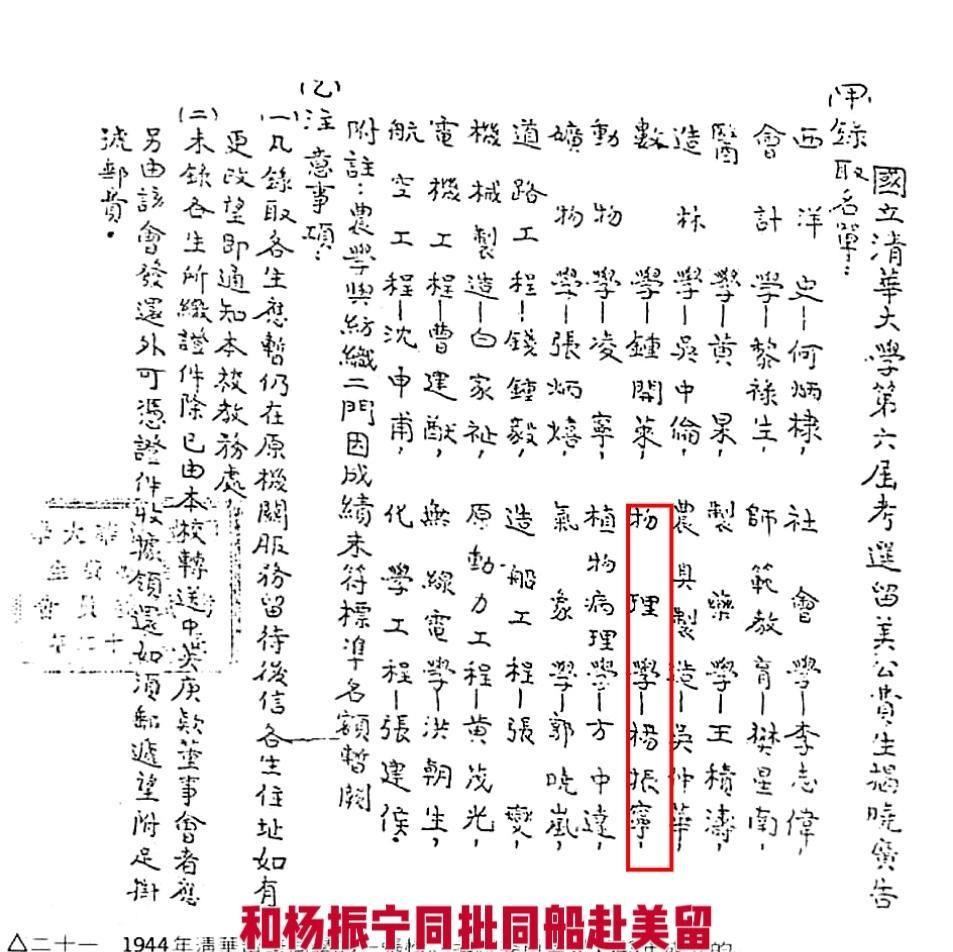 國立清華大學第六屆考選留美公費生揭曉廣告
(甲)錄取名單：
西洋史—何炳棣， 社會學—李志偉，
會計學—黎祿生， 師範教育—樊星南，
醫學—黃杲， 製藥學—王積濤，
造林學—吳中倫， 農具製造—吳仲華，
數學—鍾開萊， 物理學—楊振寧，
動物學—凌寧， 植物病理學—方中達，
礦物學—張炳熺， 氣象學—郭曉嵐，
道路工程—錢鍾毅， 造船工程—張燮，
機械製造—白家祉， 原動力工程—黃茂光，
電機工程—曹建猷， 無線電學—洪朝生，
航空工程—沈申甫， 化學工程—張建侯。
附註：農學與紡織二門因成績未符標準名額暫闕
(乙)注意事項：
(一)凡錄取各生應暫仍在原機關服務留待後信各生住址如有
更改望即通知本校教務處
(二)未錄各生所繳證件除已由本校轉送中英庚款董事會者應
另由該會發還外可憑證件收據領還如須郵遞望附足掛
號郵費。
和杨振宁同批同船赴美留
△二十一 1944年清華